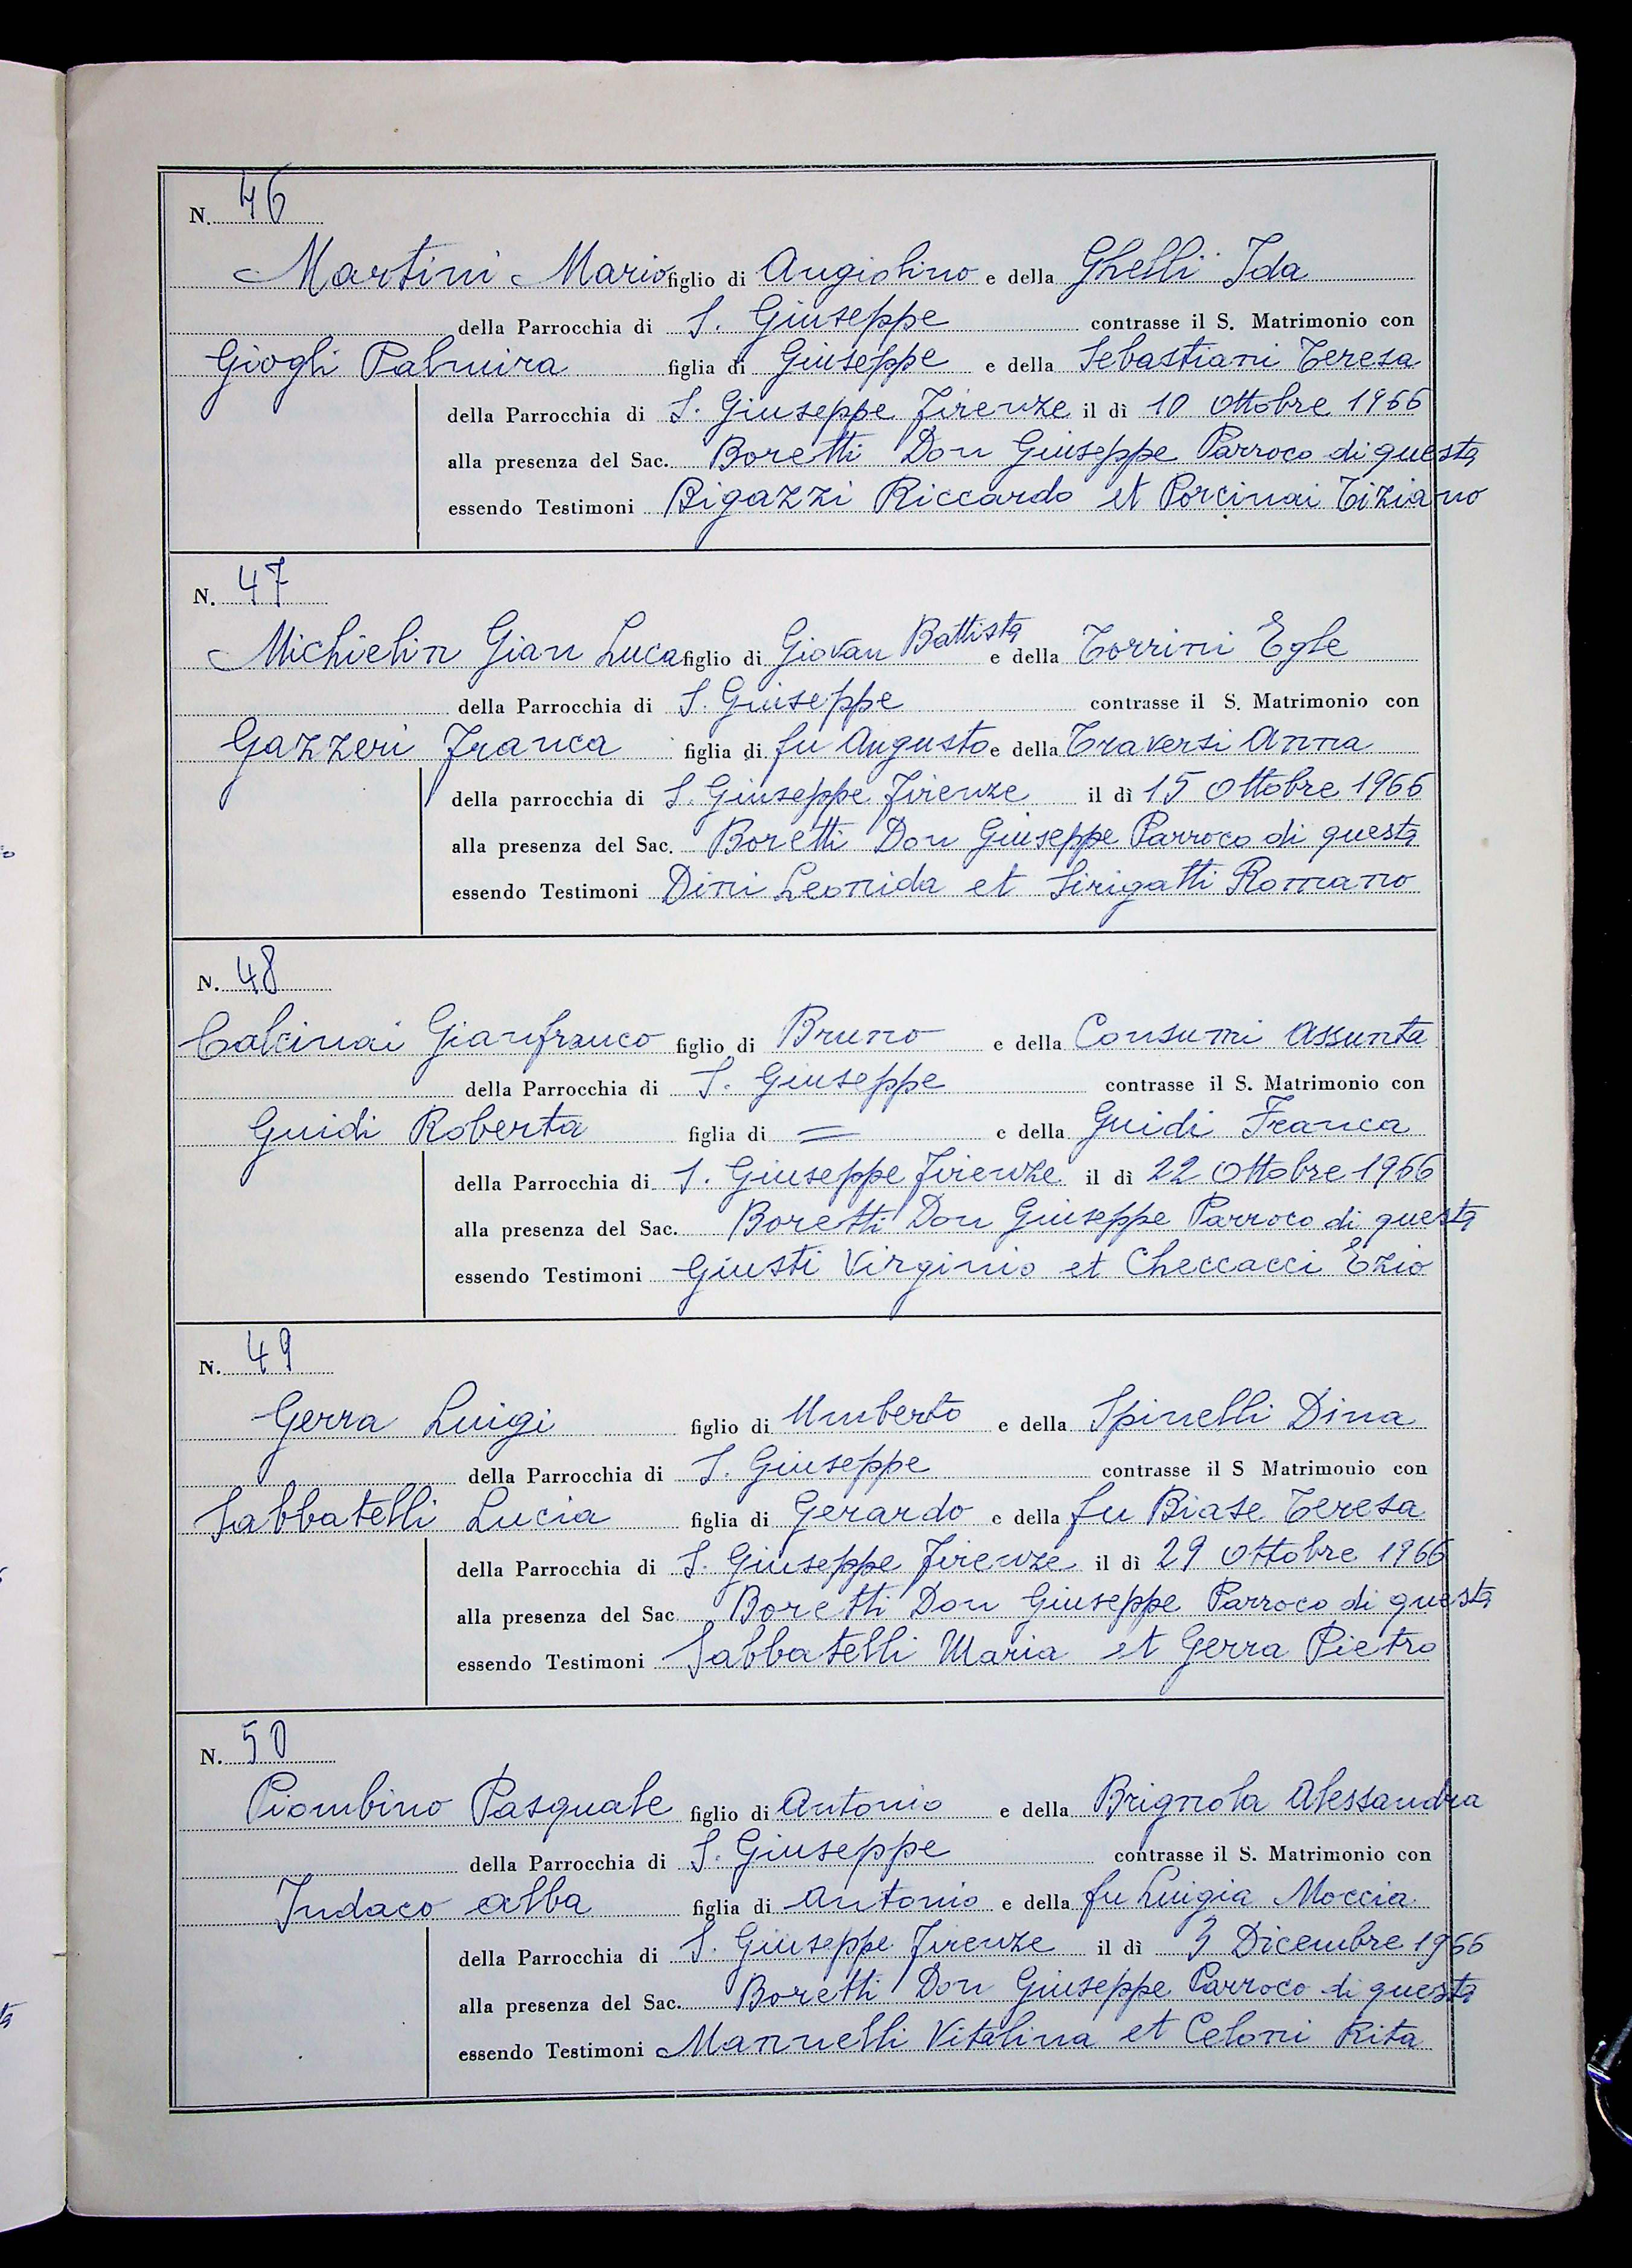 N. 46
Martini Mario figlio di Angiolino e della Ghelli Ida
della Parrocchia di S. Giuseppe contrasse il S. Matrimonio con
Giogli Palmira figlia di Giuseppe e della Sebastiani Teresa
della Parrocchia di S. Giuseppe Firenze il dì 10 Ottobre 1966
alla presenza del Sac. Boretti Don Giuseppe Parroco di questa
essendo Testimoni Bigazzi Riccardo et Porcinai Tiziano
N. 47
Michielin Gian Luca figlio di Giovan Battista e della Torrini Egle
della Parrocchia di S. Giuseppe contrasse il S. Matrimonio con
Gazzeri Franca figlia di fu Augusto e della Traversi Anna
della parrocchia di S. Giuseppe Firenze il dì 15 Ottobre 1966
alla presenza del Sac. Boretti Don Giuseppe Parroco di questa
essendo Testimoni Dini Leonida et Sirigatti Romano
N. 48
Calcinai Gianfranco figlio di Bruno e della Consumi Assunta
della Parrocchia di S. Giuseppe contrasse il S. Matrimonio con
Guidi Roberta figlia di = e della Guidi Franca
della Parrocchia di S. Giuseppe Firenze il dì 22 Ottobre 1966
alla presenza del Sac. Boretti Don Giuseppe Parroco di questa
essendo Testimoni Giusti Virginio et Checcacci Ezio
N. 49
Gerra Luigi figlio di Umberto e della Spinelli Dina
della Parrocchia di S. Giuseppe contrasse il S Matrimonio con
Sabbatelli Lucia figlia di Gerardo e della fu Biase Teresa
della Parrocchia di S. Giuseppe Firenze il dì 29 Ottobre 1966
alla presenza del Sac. Boretti Don Giuseppe Parroco di questa
essendo Testimoni Sabbatelli Maria et Gerra Pietro
N. 50
Piombino Pasquale figlio di Antonio e della Brignola Alessandra
della Parrocchia di S. Giuseppe contrasse il S. Matrimonio con
Indaco Alba figlia di Antonio e della fu Luigia Moccia
della Parrocchia di S. Giuseppe Firenze il dì 3 Dicembre 1966
alla presenza del Sac. Boretti Don Giuseppe Parroco di questa
essendo Testimoni Mannelli Vitalina et Celoni Rita